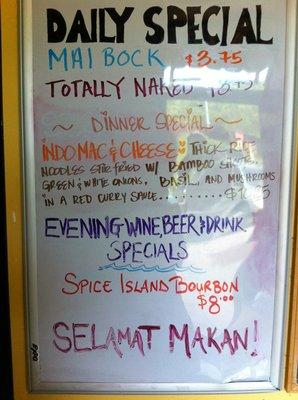 DAILY SPECIAL
MAI BOCK $3.75
TOTALLY NAKED
~ DINNER SPECIAL ~
INDO MAC & CHEESE THICK RICE
NOODLES STIR FRIED W/ BAMBOO SHOOTS,
GREEN & WHITE ONIONS, BASIL, AND MUSHROOMS
IN A RED CURRY SAUCE..........
EVENING WINE BEER & DRINK
SPECIALS
SPICE ISLAND BOURBON
$8.00
SELAMAT MAKAN!